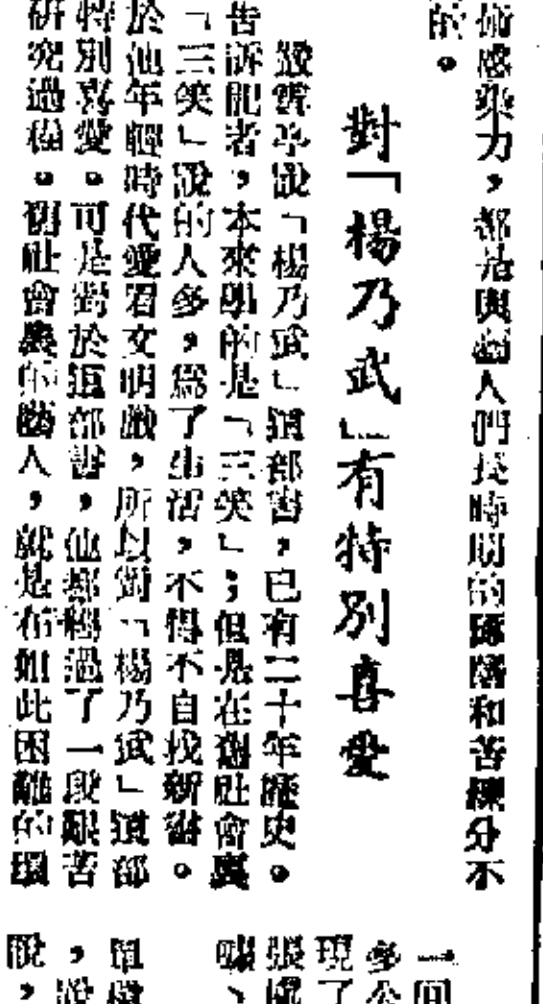 術感染力,都是與藝人們長時期的琢磨和苦練分不
的。
對「楊乃武」有特別喜愛
嚴雪亭說「楊乃武」這部書,已有二十年歷史。
告訴記者,本來學的是「三笑」;但是在舊社會裏
「三笑」說的人多,爲了生活,不得不自找新書。
於他年輕時代愛看文明戲,所以對「楊乃武」這部
特別喜愛。可是對於這部書,他都經過了一段艱苦
研究過程。舊社會裏的藝人,就是在如此困難的環
一間
多公
現了
張
單
,說
說,